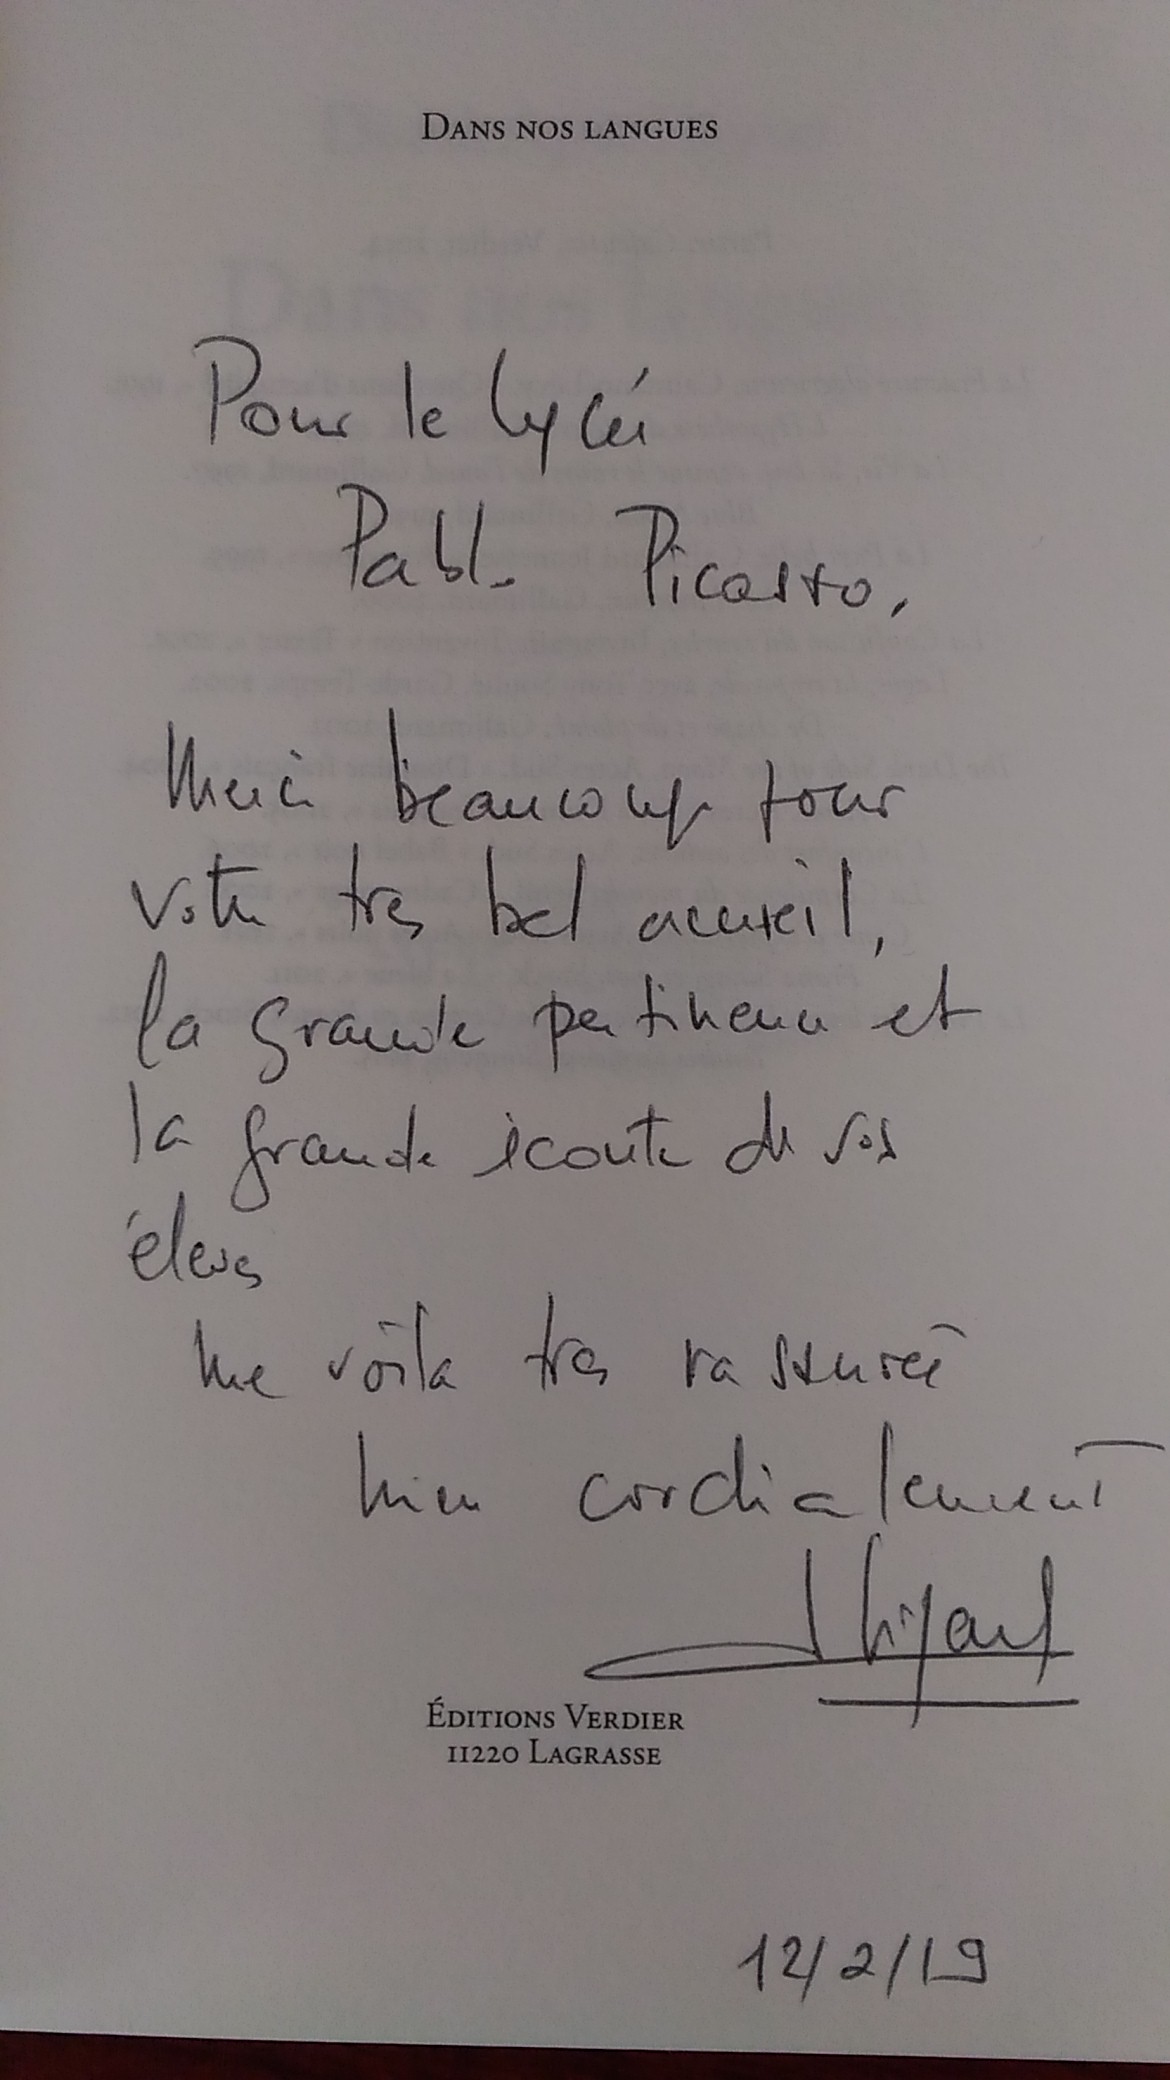 DANS NOS LANGUES
Pour le Lycée
Pablo Picasso,
Merci beaucoup pour
votre très bel accueil,
la grande pertinence et
la grande écoute de vos
élèves
me voilà très rassurée
bien cordialement
ÉDITIONS VERDIER
11220 LAGRASSE
12/2/19